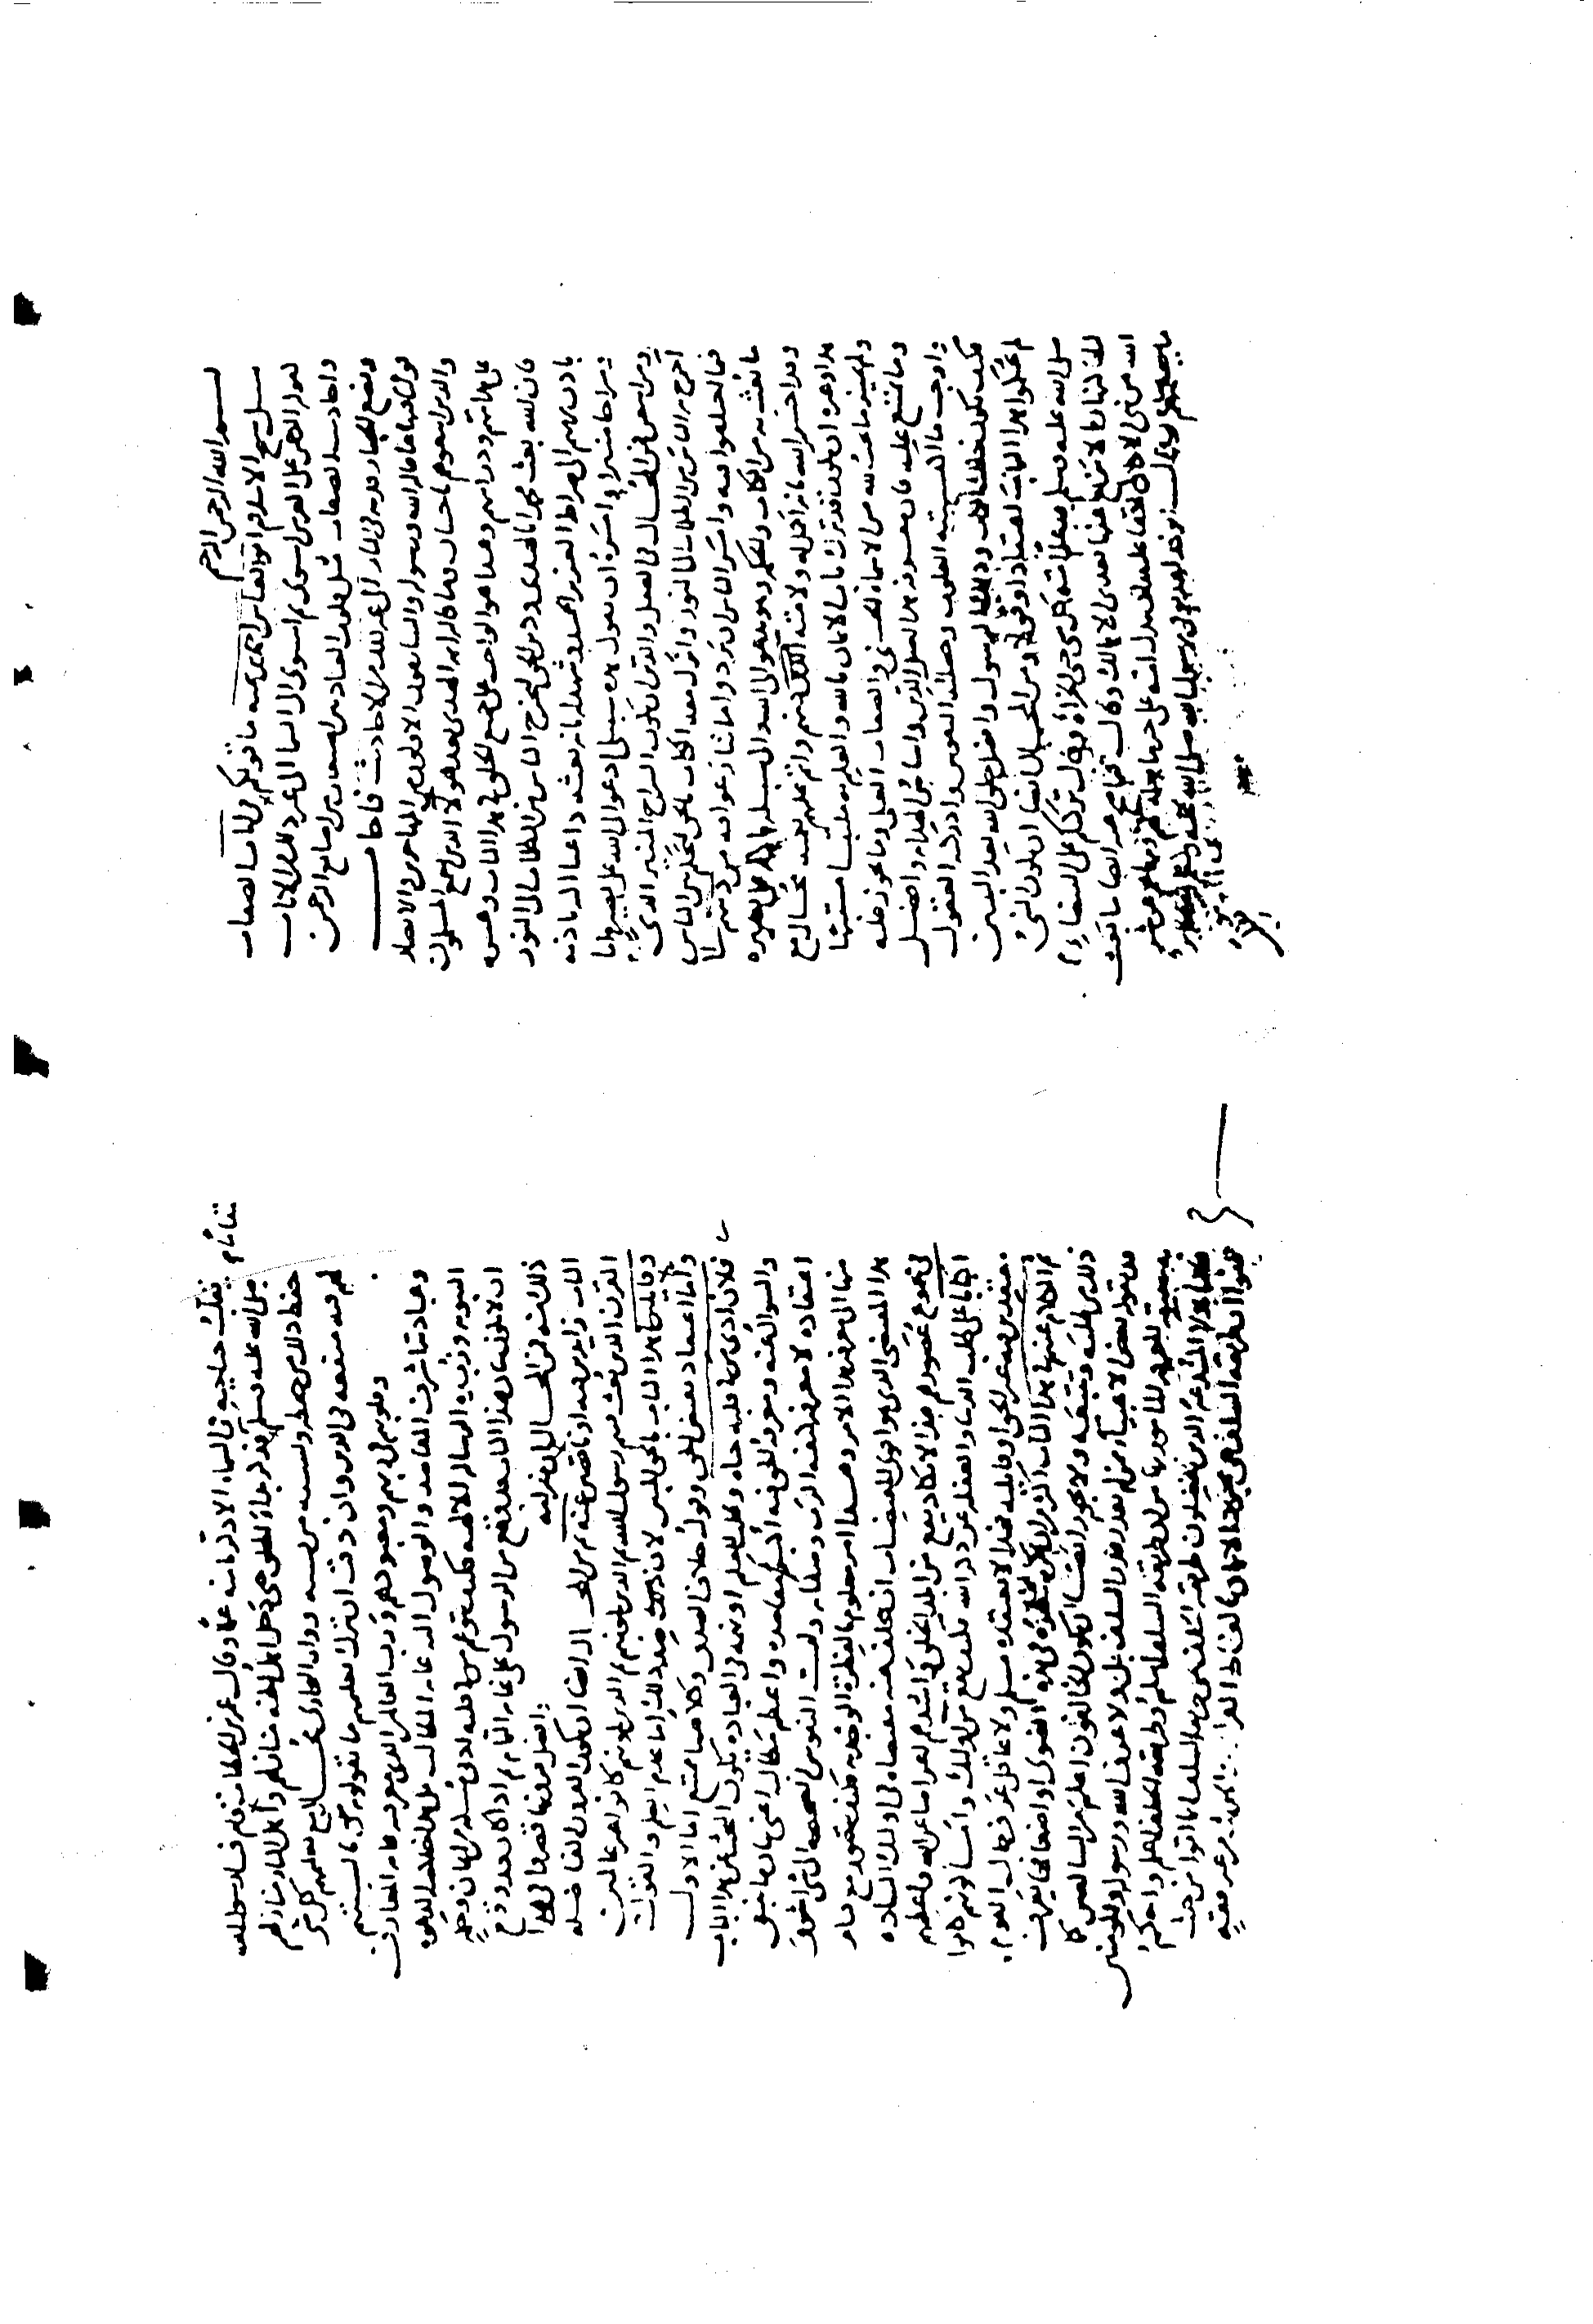 بسم الله الرحمن الرحيم
سئل شيخ الاسلام ابو العباس احمد بن تيميه ما قولكم في ايات الصفات
كقوله الرحمن على العرش استوى ثم استوى الى السما الى غير ذلك من الايات
واحاديث الصفات مثل قلوب العباد بين اصبعين من اصابع الرحمن
ويضع الجبار قدمه في النار الى غير ذلك من الاحاديث فاجاب
قولنا فيها ما قاله الله ورسوله والسابقون الاولون من المهاجرين والانصار
والذين اتبعوهم باحسان وما قاله ايمة الهدى بعد هولا الذين اجمع المسلمون
على هدايتهم ودرايتهم وهذا هو الواجب على جميع الخلق في هذا الباب وغيره
فان الله بعث محمدا بالهدى ودين الحق ليخرج الناس من الظلمات الى النور
باذن ربهم الى صراط العزيز الحميد وشهد له بانه بعثه داعيا اليه باذنه
وسراجا منيرا وامره ان يقول هذه سبيلي ادعو الى الله على بصيرة انا
ومن اتبعني فمن المحال في العقل والدين ان يكون السراج المنير الذي
اخرج به الناس من الظلمات الى النور وانزل معه الكتاب بالحق ليحكم بين الناس
فيما اختلفوا فيه وامر الناس ان يردوا ما تنازعوا فيه من دينهم الى
ما بعث به من الكتاب والحكمة وهو يدعو الى الله والى سبيله على بصيرة
وقد اخبر الله بانه اكمل له ولامته دينهم واتم عليهم نعمته محال مع
هذا وغيره ان يكون قد ترك باب الايمان بالله والعلم به ملتبسا مشتبها
ولم يميز ما يجب لله من الاسماء الحسنى والصفات العلى وما يجوز عليه
وما يمتنع عليه فان معرفة هذا اصل الدين واساس الهداية وافضل
واوجب ما اكتسبته القلوب وحصلته النفوس وادركته العقول
فكيف يكون ذلك الكتاب وذلك الرسول وافضل خلق الله بعد النبيين
لم يحكموا هذا الباب اعتقادا وقولا ومن المحال ايضا ان يكون النبي
صلى الله عليه وسلم قد علم امته كل شي حتى الخراة وقال تركتكم على البيضاء
ليلها كنهارها لا يزيغ عنها بعدي الا هالك وقال فيما صح عنه ايضا ما بعث
الله من نبي الا كان حقا عليه ان يدل امته على خير ما يعلمه لهم وينهاهم عن شر
ما يعلمه لهم وقال ابو ذر لقد توفي رسول الله صلى الله عليه وسلم وما طاير
يقلب جناحيه في السماء الا ذكر لنا منه علما وقال عمر بن الخطاب قام فينا رسول الله
صلى الله عليه وسلم مقاما فذكر بدء الخلق حتى دخل اهل الجنة منازلهم واهل النار منازلهم
حفظ ذلك من حفظه ونسيه من نسيه رواه البخاري محال مع تعليمهم كل شي
لهم فيه منفعة في الدين وان دقت ان يترك تعليمهم ما يقولونه بالسنتهم
وقلوبهم في ربهم ومعبودهم رب العالمين الذي معرفته غاية المعارف
وعبادته اشرف المقاصد والوصول اليه غاية المطالب بل هذا خلاصة الدعوة
النبوية وزبدة الرسالة الالهية فكيف يتوهم من في قلبه ادنى مسكة من ايمان وحكمة
ان لا يكون بيان هذا الباب قد وقع من الرسول على غاية التمام ثم اذا كان قد وقع
ذلك منه فمن المحال ان خير امته وافضل قرونها قصروا في هذا
الباب زايدين فيه او ناقصين عنه ثم من المحال ايضا ان تكون القرون الفاضلة
القرن الذي بعث فيهم رسول الله ثم الذين يلونهم ثم الذين يلونهم كانوا غير عالمين
وقايلين في هذا الباب بالحق المبين لان ضد ذلك اما عدم العلم والقول
واما اعتقاد نقيض الحق وقول خلاف الصدق وكلاهما ممتنع اما الاول
فلان من في قلبه ادنى حياة وطلب للعلم او نهمة في العبادة يكون البحث عن هذا الباب
والسوال عنه ومعرفة الحق فيه اكبر مقاصده واعظم مطالبه اعني بيان ما ينبغي
اعتقاده لا معرفة كيفية الرب وصفاته وليست النفوس الصحيحة الى شي اشوق
منها الى معرفة هذا الامر وهذا امر معلوم بالفطرة الوجدية فكيف يتصور مع قيام
هذا المقتضي الذي هو اقوى المقتضيات ان يتخلف عنه مقتضاه في اوليك السادة
في مجموع عصورهم هذا لا يكاد يقع من ابلد الخلق واشدهم اعراضا عن الله واعظمهم
اكبابا على طلب الدنيا والغفلة عن ذكر الله فكيف يقع من اوليك واما كونهم كانوا
معتقدين فيه غير الحق او قايليه فهذا لا يعتقده مسلم ولا عاقل عرف حال القوم
ثم الكلام عنهم في هذا الباب اكثر من ان يمكن سطره في هذه الفتوى او اضعافها يعرف
ذلك من طلبه وتتبعه ولا يجوز ايضا ان يكون الخالفون اعلم من السالفين كما
قد يقوله بعض الاغبياء ممن لم يقدر قدر السلف بل ولا عرف الله ورسوله والمومنين
به حقيقة المعرفة المامور بها من ان طريقة السلف اسلم وطريقة الخلف اعلم واحكم
فان هولا المبتدعة الذين يفضلون طريقة الخلف على طريقة السلف انما اتوا من حيث
ظنوا ان طريقة السلف هي مجرد الايمان بالفاظ القران والحديث من غير فقه